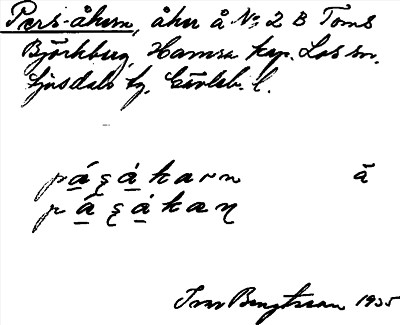 Pers-åkern, åker å No 2 B Toms
Björkberg, Hamra kap. Los sn.
Ljusdals tg. Gävleb. l.
pá̱ʂá̱karn ã
pá̱ʂá̱kaɳ
Ivar Bengtsson 1935